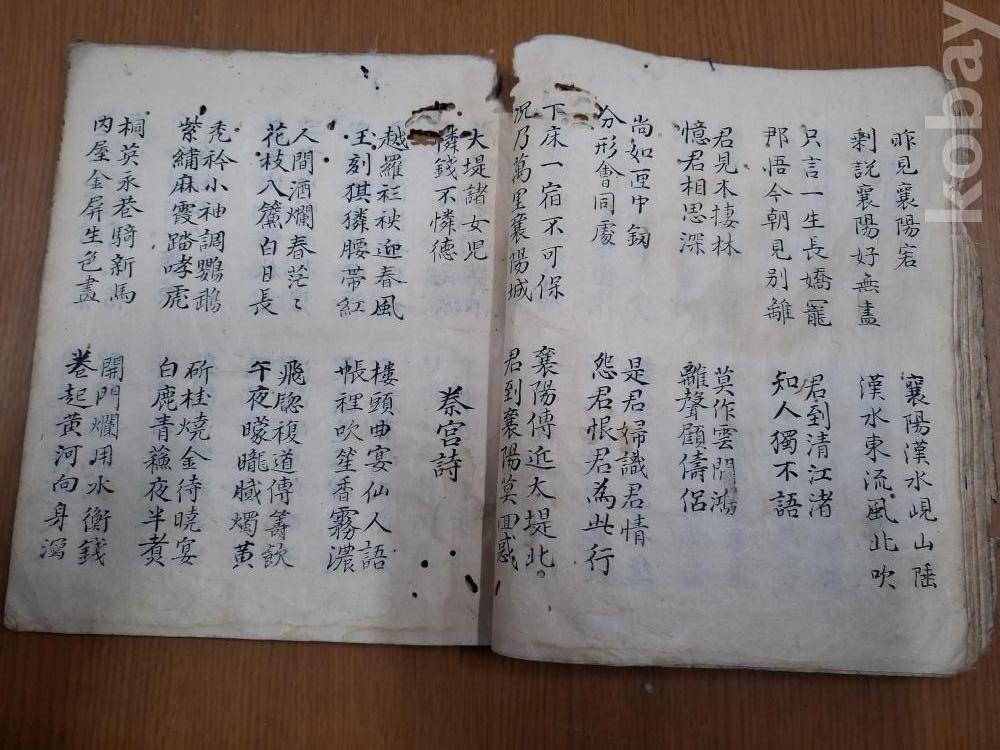 昨見襄陽客
剩說襄陽好無盡
襄陽漢水峴山陲
漢水東流風北吹
只言一生長嬌寵
那悟今朝見別離
君到清江渚
知人獨不語
君見木棲林
憶君相思深
莫作雲間鴻
離聲顧儔侶
尚如匣中劍
分形會同處
是君婦識君情
怨君恨君為此行
下床一宿不可保
况乃萬里襄陽城
襄陽傳近大堤北
君到襄陽莫回惑
大堤諸女児
憐錢不憐德
秦宮詩
越羅衫袂迎春風
玉刻猉獜腰帶紅
樓頭曲宴仙人語
帳裡吹笙香霧濃
人間酒爛春茫〻
花枝入簾白日長
飛窓複道傳籌飲
午夜曚曨膩燭黃
禿衿小袖調鸚鵡
紫繡麻霞踏哮虎
斫桂燒金待曉宴
白鹿青蘓夜半煮
桐英永巷騎新馬
內屋金屏生色畫
開門爛用水衡錢
卷起黃河向身瀉
kobay